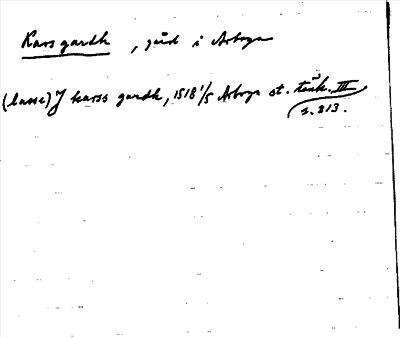 Karsgardh, gård i Arboga
(lasse) J karss gardh, 1518 1/5 Arboga st. tänk. III
s. 213.